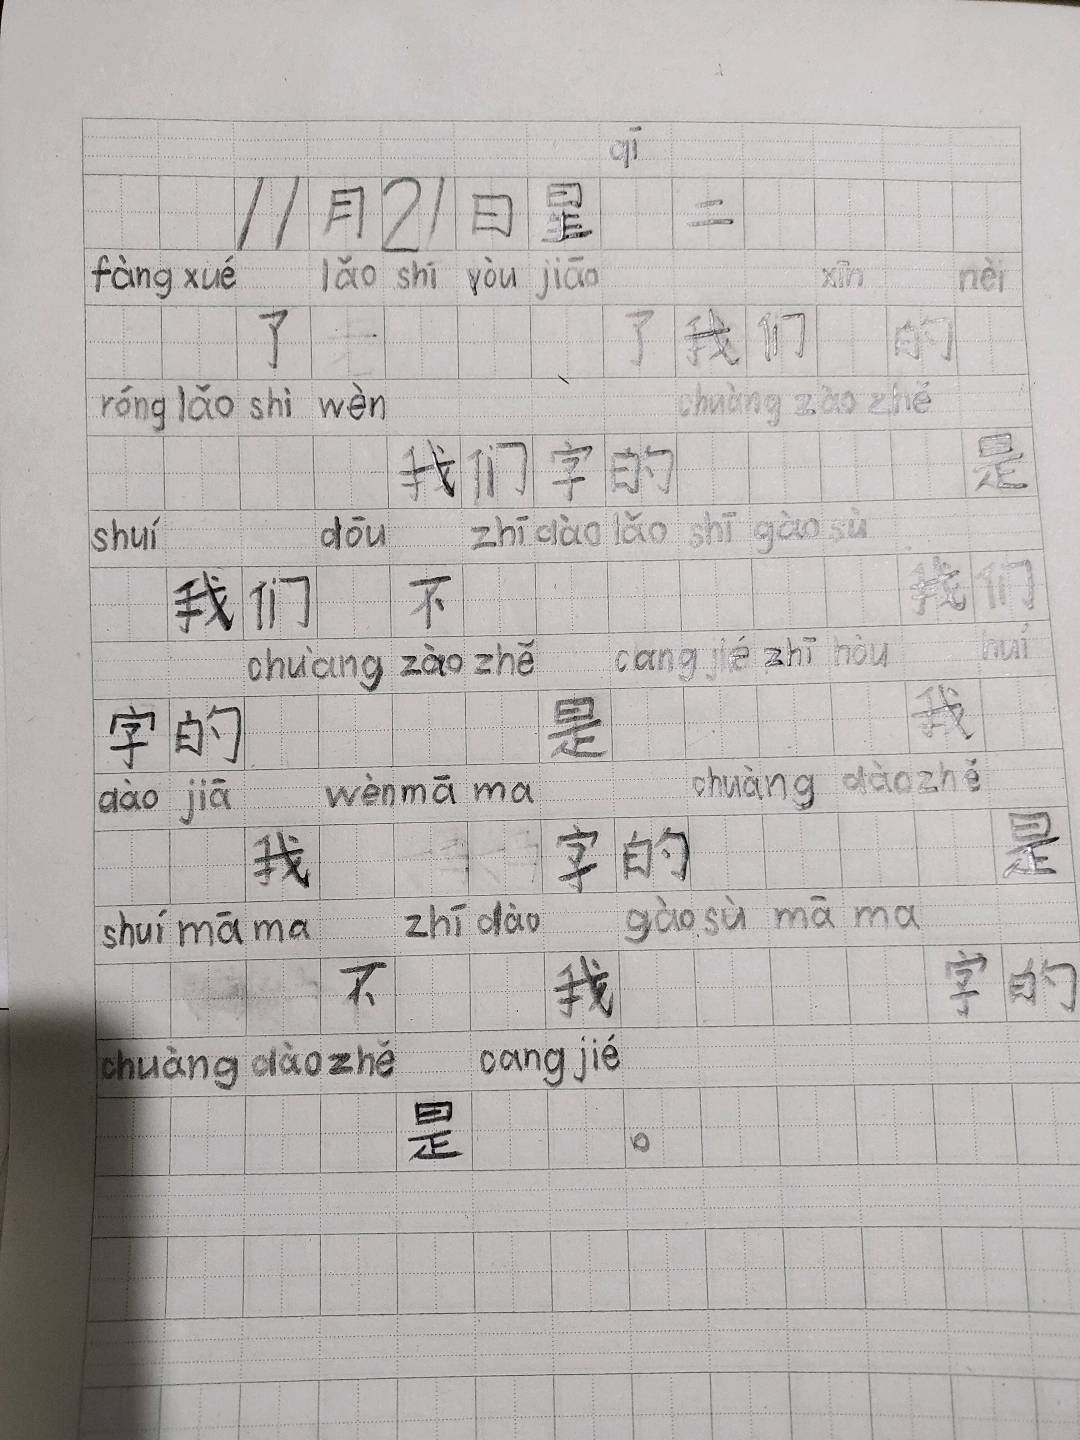 qī
11月21日星 二
fàng xué lǎo shī yòu jiāo xīn nèi
了 了我们 的
róng lǎo shì wèn chuàng zào zhě
我们字的 是
shuí dōu zhī dào lǎo shī gào sù
我们 不 我们
chuàng zào zhě cang jié zhī hòu huí
字的 是 我
dào jiā wèn mā ma chuàng dào zhě
我 字的 是
shuí mā ma zhī dào gào sù mā ma
不 我 字的
chuàng dào zhě cang jié
是 。